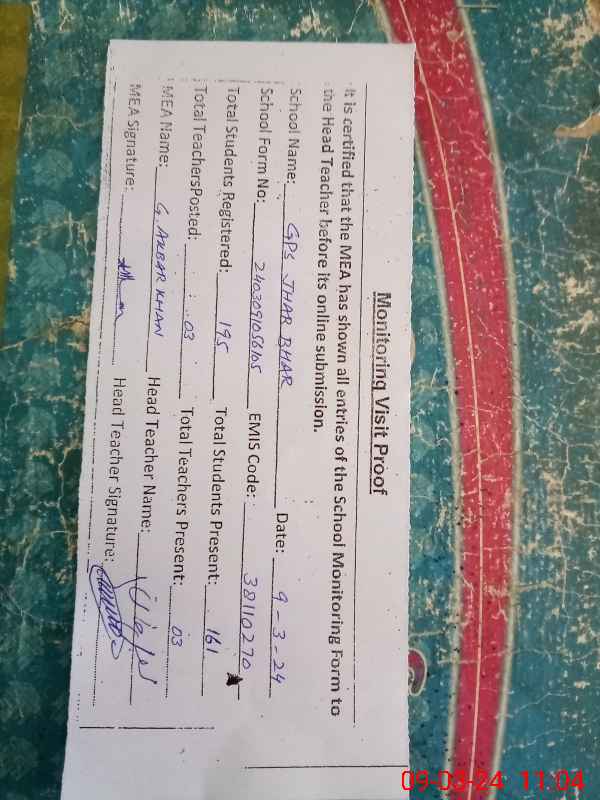 Monitoring Visit Proof
It is certified that the MEA has shown all entries of the School Monitoring Form to
the Head Teacher before its online submission.
School Name: GPS JHAR BHAR Date: 9-3-24
School Form No: 2403091056105 EMIS Code: 38110270
Total Students Registered: 195 Total Students Present: 161
Total TeachersPosted: 03 Total Teachers Present: 03
MEA Name: G. AKBAR KHAN Head Teacher Name:
MEA Signature: Head Teacher Signature:
09-03-24 11:04